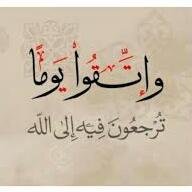 وَاتَّقُوا يَوْمًا
تُرْجَعُونَ فِيهِ إِلَى اللَّه